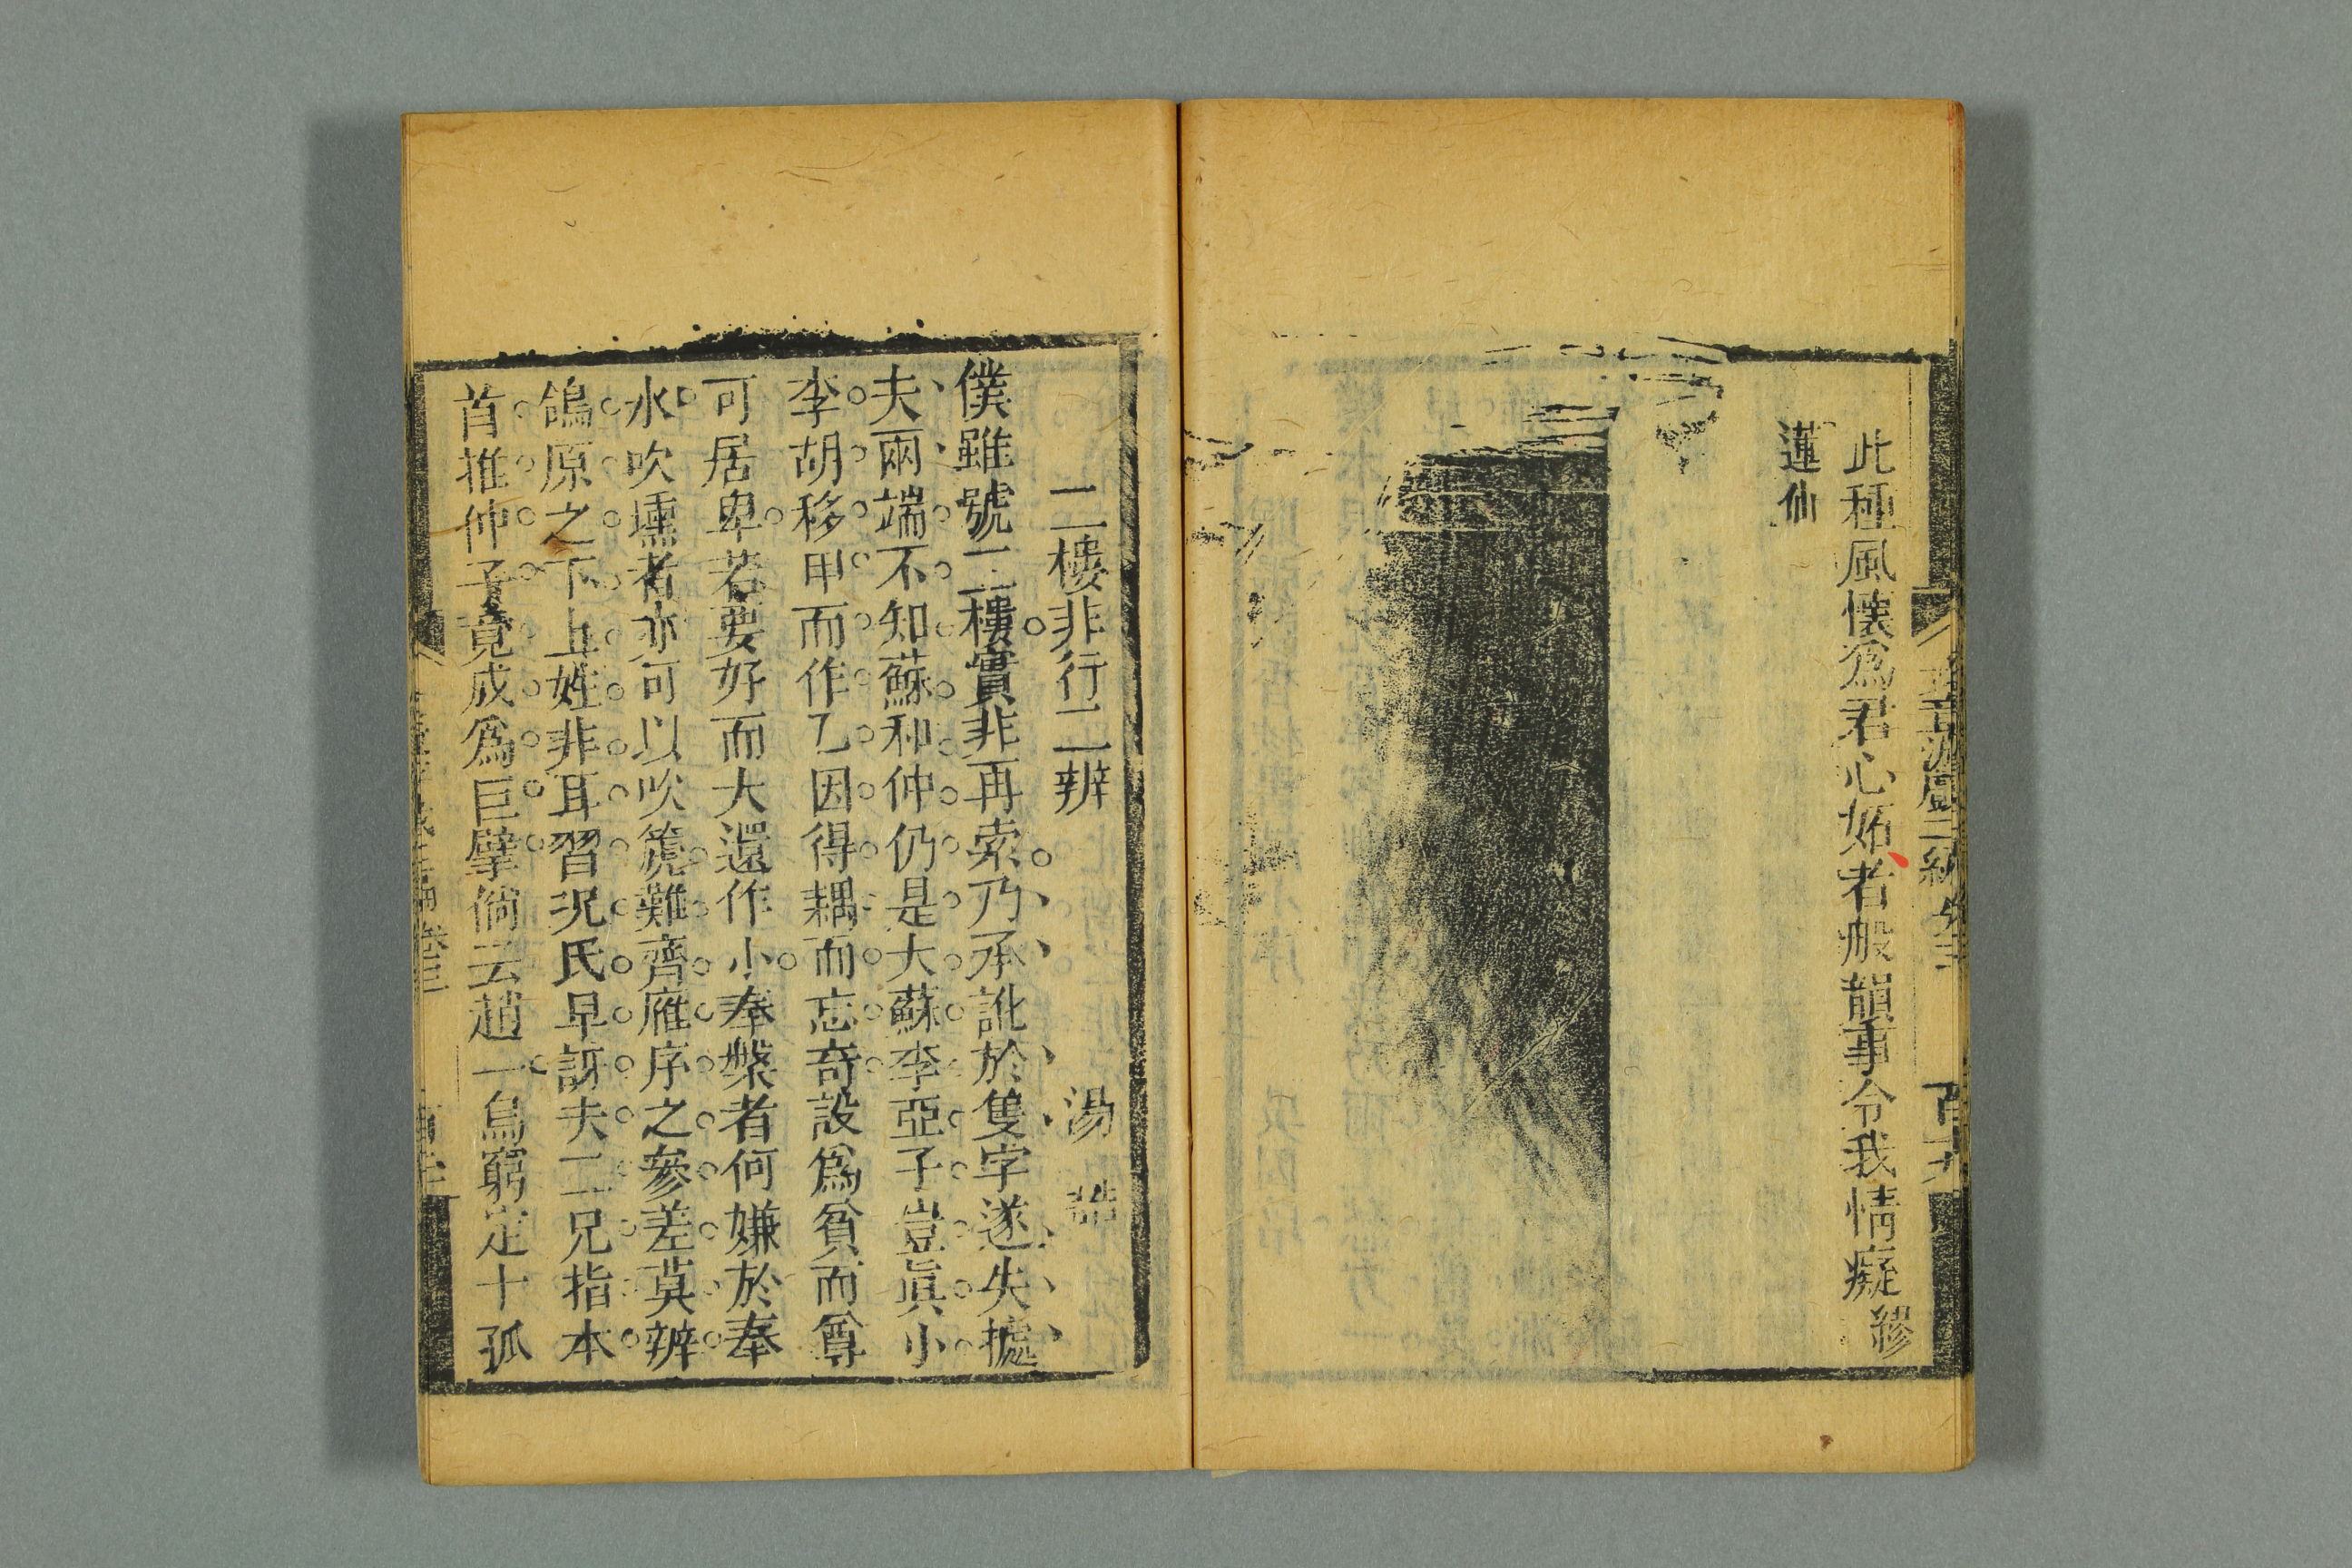 此種風懷爲君心妬者般韻事令我情癡繆
蓮仙
二樓非行二辨
湯誥
僕雖號二樓實非再索乃承訛於隻字遂失據
夫兩端不知蘇和仲仍是大蘇李亞子豈眞小
李胡移甲而作乙因得耦而忘奇設爲貧而尊
可居卑若要好而大還作小奉槃者何嫌於奉
水吹壎者亦可以吹篪難齊雁序之參差莫辨
鴒原之下上姓非耳習況氏早訝夫二兄指本
首推仲子竟成爲巨擘倘云趙一烏窮定十孤